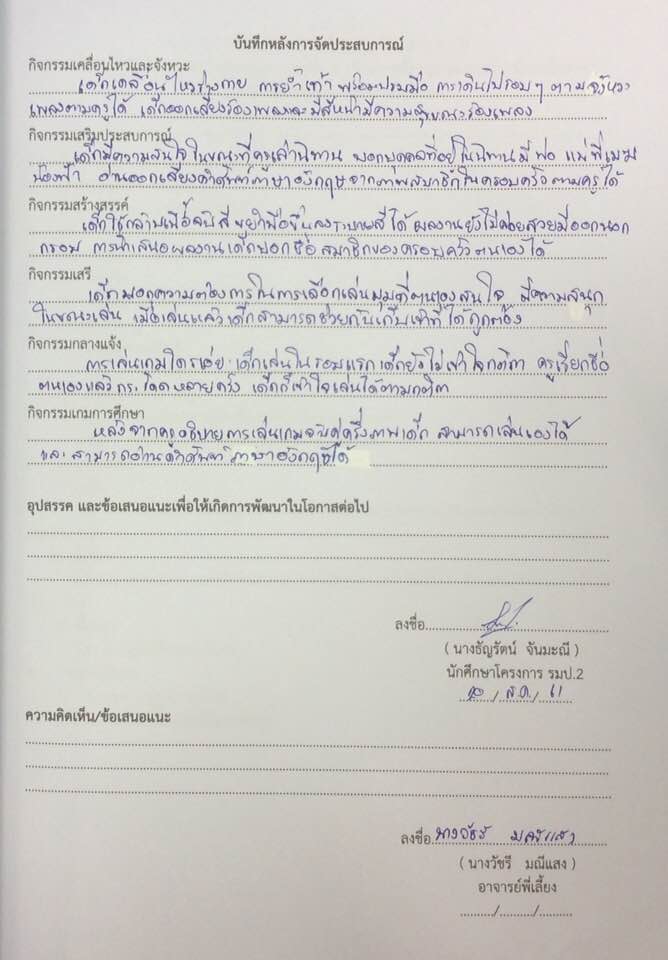 บันทึกหลังการจัดประสบการณ์
กิจกรรมเคลื่อนไหวและจังหวะ
เด็กเคลื่อนไหวร่างกาย การย่ำเท้า พร้อมปรบมือ การเดินไปรอบๆ ตามจังหวะ
เพลงตามครูได้ เด็กออกเสียงร้องเพลงและมีสีหน้ามีความสุขขณะร้องเพลง
กิจกรรมเสริมประสบการณ์
เด็กมีความสนใจในขณะที่ครูเล่านิทาน บอกบุคคลที่อยู่ในนิทานมี พ่อ แม่ พี่เมฆ
น้องฟ้า อ่านออกเสียงคำศัพท์ภาษาอังกฤษจากภาพสมาชิกในครอบครัวตามครูได้
กิจกรรมสร้างสรรค์
เด็กใช้กล้ามเนื้อจับสี ขยำมือขึ้นลงระบายสีได้ ผลงานยังไม่ค่อยสวยมีออกนอก
กรอบ การนำเสนอผลงานเด็กบอกชื่อ สมาชิกของครอบครัวตนเองได้
กิจกรรมเสรี
เด็กบอกความต้องการในการเลือกเล่นมุมที่ตนเองสนใจ มีความสนุก
ในขณะเล่น เมื่อเล่นแล้วเด็กสามารถช่วยกันเก็บเข้าที่ได้ถูกต้อง
กิจกรรมกลางแจ้ง
การเล่นเกมใครเอ่ย เด็กเล่นในรอบแรก เด็กยังไม่เข้าใจกติกา ครูเรียกชื่อ
ตนเองแล้วกระโดดหลายครั้ง เด็กก็เข้าใจเล่นได้ตามกติกา
กิจกรรมเกมการศึกษา
หลังจากครูอธิบายการเล่นเกมจับคู่ครึ่งภาพเด็ก สามารถเล่นเองได้
และสามารถอ่านคำศัพท์ภาษาอังกฤษได้
อุปสรรค และข้อเสนอแนะเพื่อให้เกิดการพัฒนาในโอกาสต่อไป
ลงชื่อ
( นางธัญรัตน์ จันมะณี )
นักศึกษาโครงการ รมป.2
/ ส.ค. / 61
ความคิดเห็น/ข้อเสนอแนะ
ลงชื่อ นางวัชรี มณีแสง
( นางวัชรี มณีแสง )
อาจารย์พี่เลี้ยง